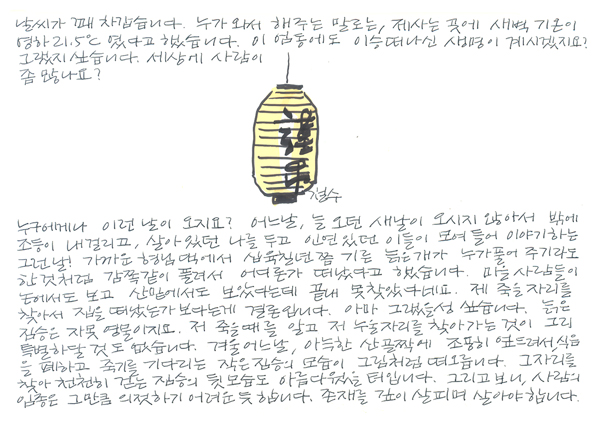 날씨가 꽤 차갑습니다. 누가 와서 해주는 말로는, 제 사는 곳에 새벽 기온이
영하 21.5℃ 였다고 했습니다. 이 엄동에도 이승 떠나신 생명이 계시겠지요?
그렇지 싶습니다. 세상에 사람이
좀 많나요?
謹弔
철수
누구에게나 이런 날이 오지요? 어느날, 늘 오던 새날이 오시지 않아서 밖에
조등이 내걸리고, 살아있던 나를 두고 인연있던 이들이 모여들어 이야기하는
그런 날! 가까운 형님 댁에서 십육칠년쯤 기른 늙은 개가 누가 풀어주기라도
한 것처럼 감쪽같이 풀려서 어디론가 떠났다고 했습니다. 마을 사람들이
논에서도 보고 산밑에서도 보았다는데 끝내 못찾았다네요. 제 죽을 자리를
찾아서 집을 떠났는가보다는게 결론입니다. 아마 그랬을성 싶습니다. 늙은
짐승은 자못 영물이지요. 저 죽을 때를 알고 저 누울자리를 찾아가는 것이 그리
특별하달 것도 없습니다. 겨울 어느날, 아득한 산골짝에 조용히 엎드려서, 식음
을 폐하고 죽기를 기다리는 작은 짐승의 모습이 그림처럼 떠오릅니다. 그 자리를
찾아 천천히 걷는 짐승의 뒷모습도 아름다웠을 터입니다. 그리고보니, 사람의
임종은 그만큼 의젓하기 어려운듯 합니다. 존재를 깊이 살피며 살아야 합니다.